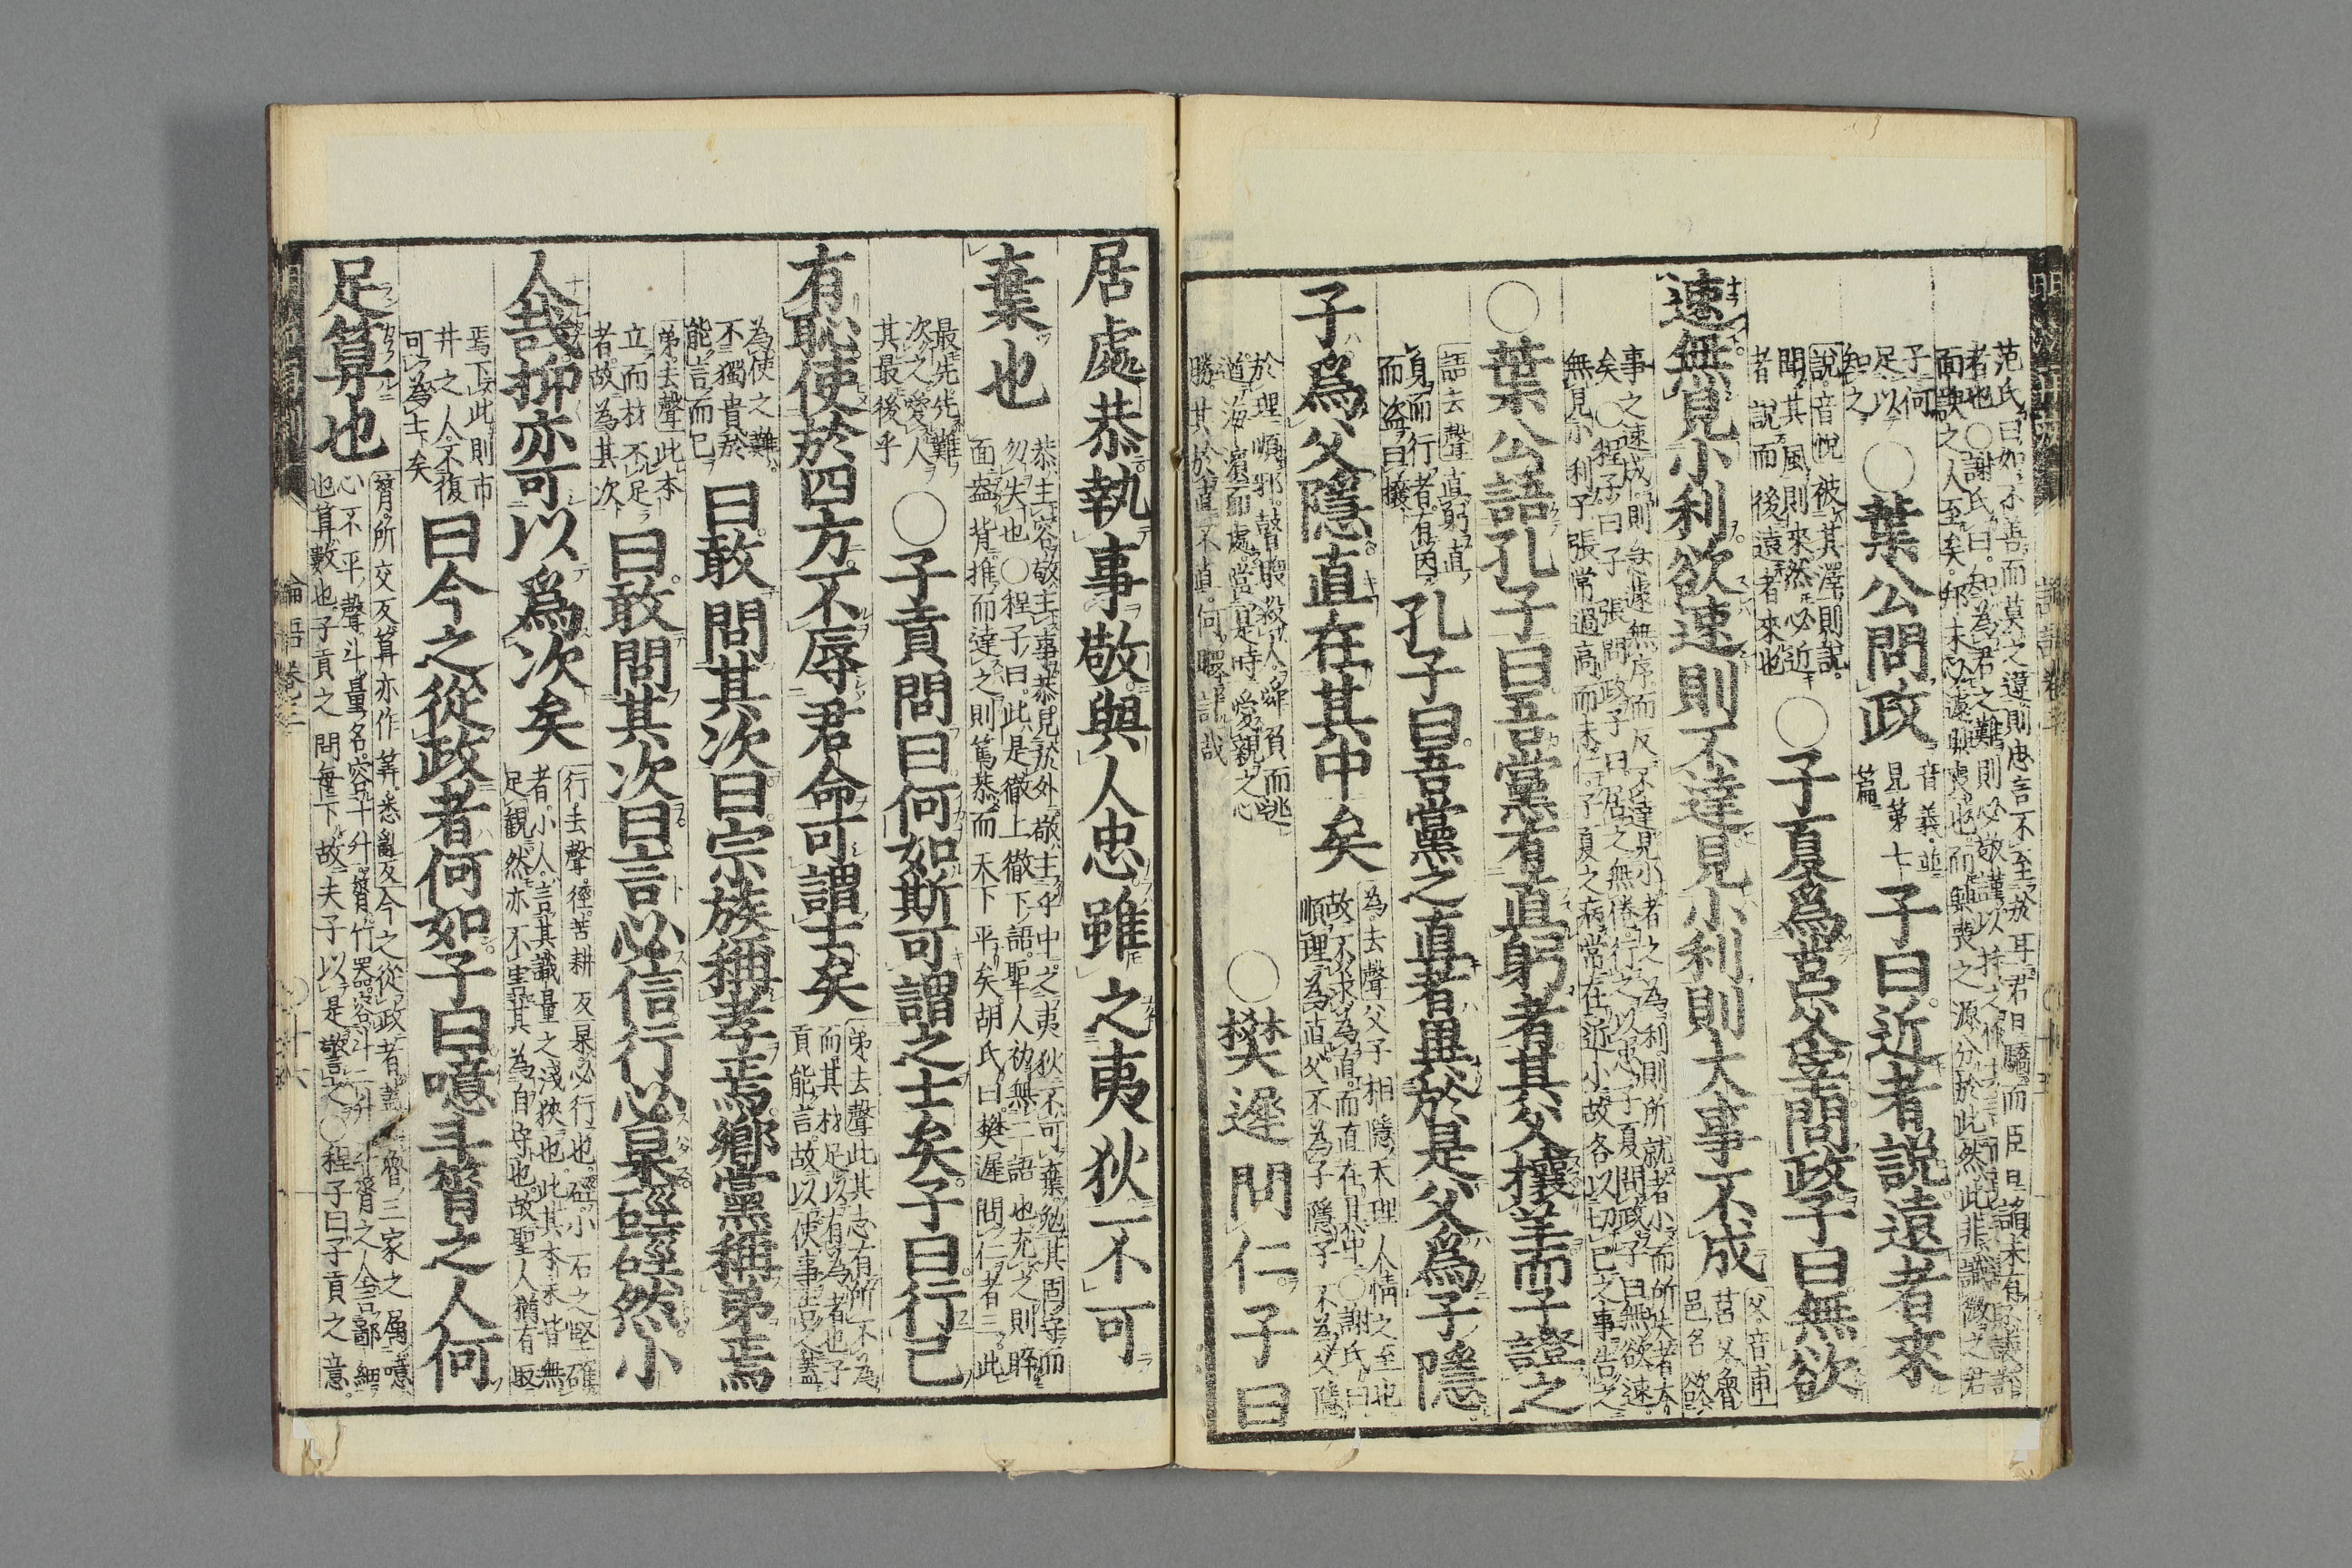 范氏曰如不善而莫之違則忠言不至於耳君日驕而臣日諂未有不喪邦
者也○謝氏曰知為君之難則必敬謹以持之惟其言而莫予違則讒諂
面諛之人至矣邦未必遽興喪也而興喪之源分於此然此非識微之君
子何
足以
知之
○葉公問政
音義並
見第七
篇
子曰近者説遠者來
説音悦被其澤則説
聞其風則來然必近
者説而後遠者來也
○子夏爲莒父宰問政子曰無欲
速無見小利欲速則不達見小利則大事不成
父音甫
莒父魯
邑名欲
事之速成則急遽無序而反不達見小者之為利則所就者小而所失者大
矣○程子曰子張問政子曰居之無倦行之以忠子夏問政子曰無欲速
無見小利子張常過高而未仁子夏之病常在近小故各以切己之事告之
○葉公語孔子曰吾黨有直躬者其父攘羊而子證之
語去聲直躬直
身而行者有因
而盗曰攘
孔子曰吾黨之直者異於是父爲子隱
子爲父隱直在其中矣
為去聲父子相隱天理人情之至也
故不求為直而直在其中○謝氏曰
順理為直父不為子隱子不為父隱
於理順邪瞽瞍殺人舜竊負而逃
遵海濱而處當是時愛親之心
勝其於直不直何暇計哉
○樊遲問仁子曰
居處恭執事敬與人忠雖之夷狄不可
棄也
恭主容敬主事恭見於外敬主乎中之夷狄不可棄勉其固守而
勿失也○程子曰此是徹上徹下語聖人初無二語也充之則睟
面盎背推而達之則篤恭而天下平矣胡氏曰樊遲問仁者三此
最先先難
次之愛人
其最後乎
○子貢問曰何如斯可謂之士矣子曰行己
有恥使於四方不辱君命可謂士矣
弟去聲此其志有所不為
而其材足以有為者也子
貢能言故以使事告之蓋
為使之難
不獨貴於
能言而已
曰敢問其次曰宗族稱孝焉鄉黨稱弟焉
弟去聲此本
立而材不足
者故為其次
曰敢問其次曰言必信行必果硜硜然小
人哉抑亦可以爲次矣
行去聲硜苦耕反果必行也硜小石之堅確
者小人言其識量之淺狹也此其本末皆無
足觀然亦不害其為自守也故聖人猶有取
焉下此則市
井之人不復
可以為士矣
曰今之從政者何如子曰噫斗筲之人何
足算也
筲所交反算亦作筭悉亂反今之從政者蓋魯三家之屬噫
心不平聲斗量名容十升筲竹器容斗二升斗筲之人言鄙細
也算數也子貢之問每下故夫子以是警之○程子曰子貢之意
論語卷之三
十六